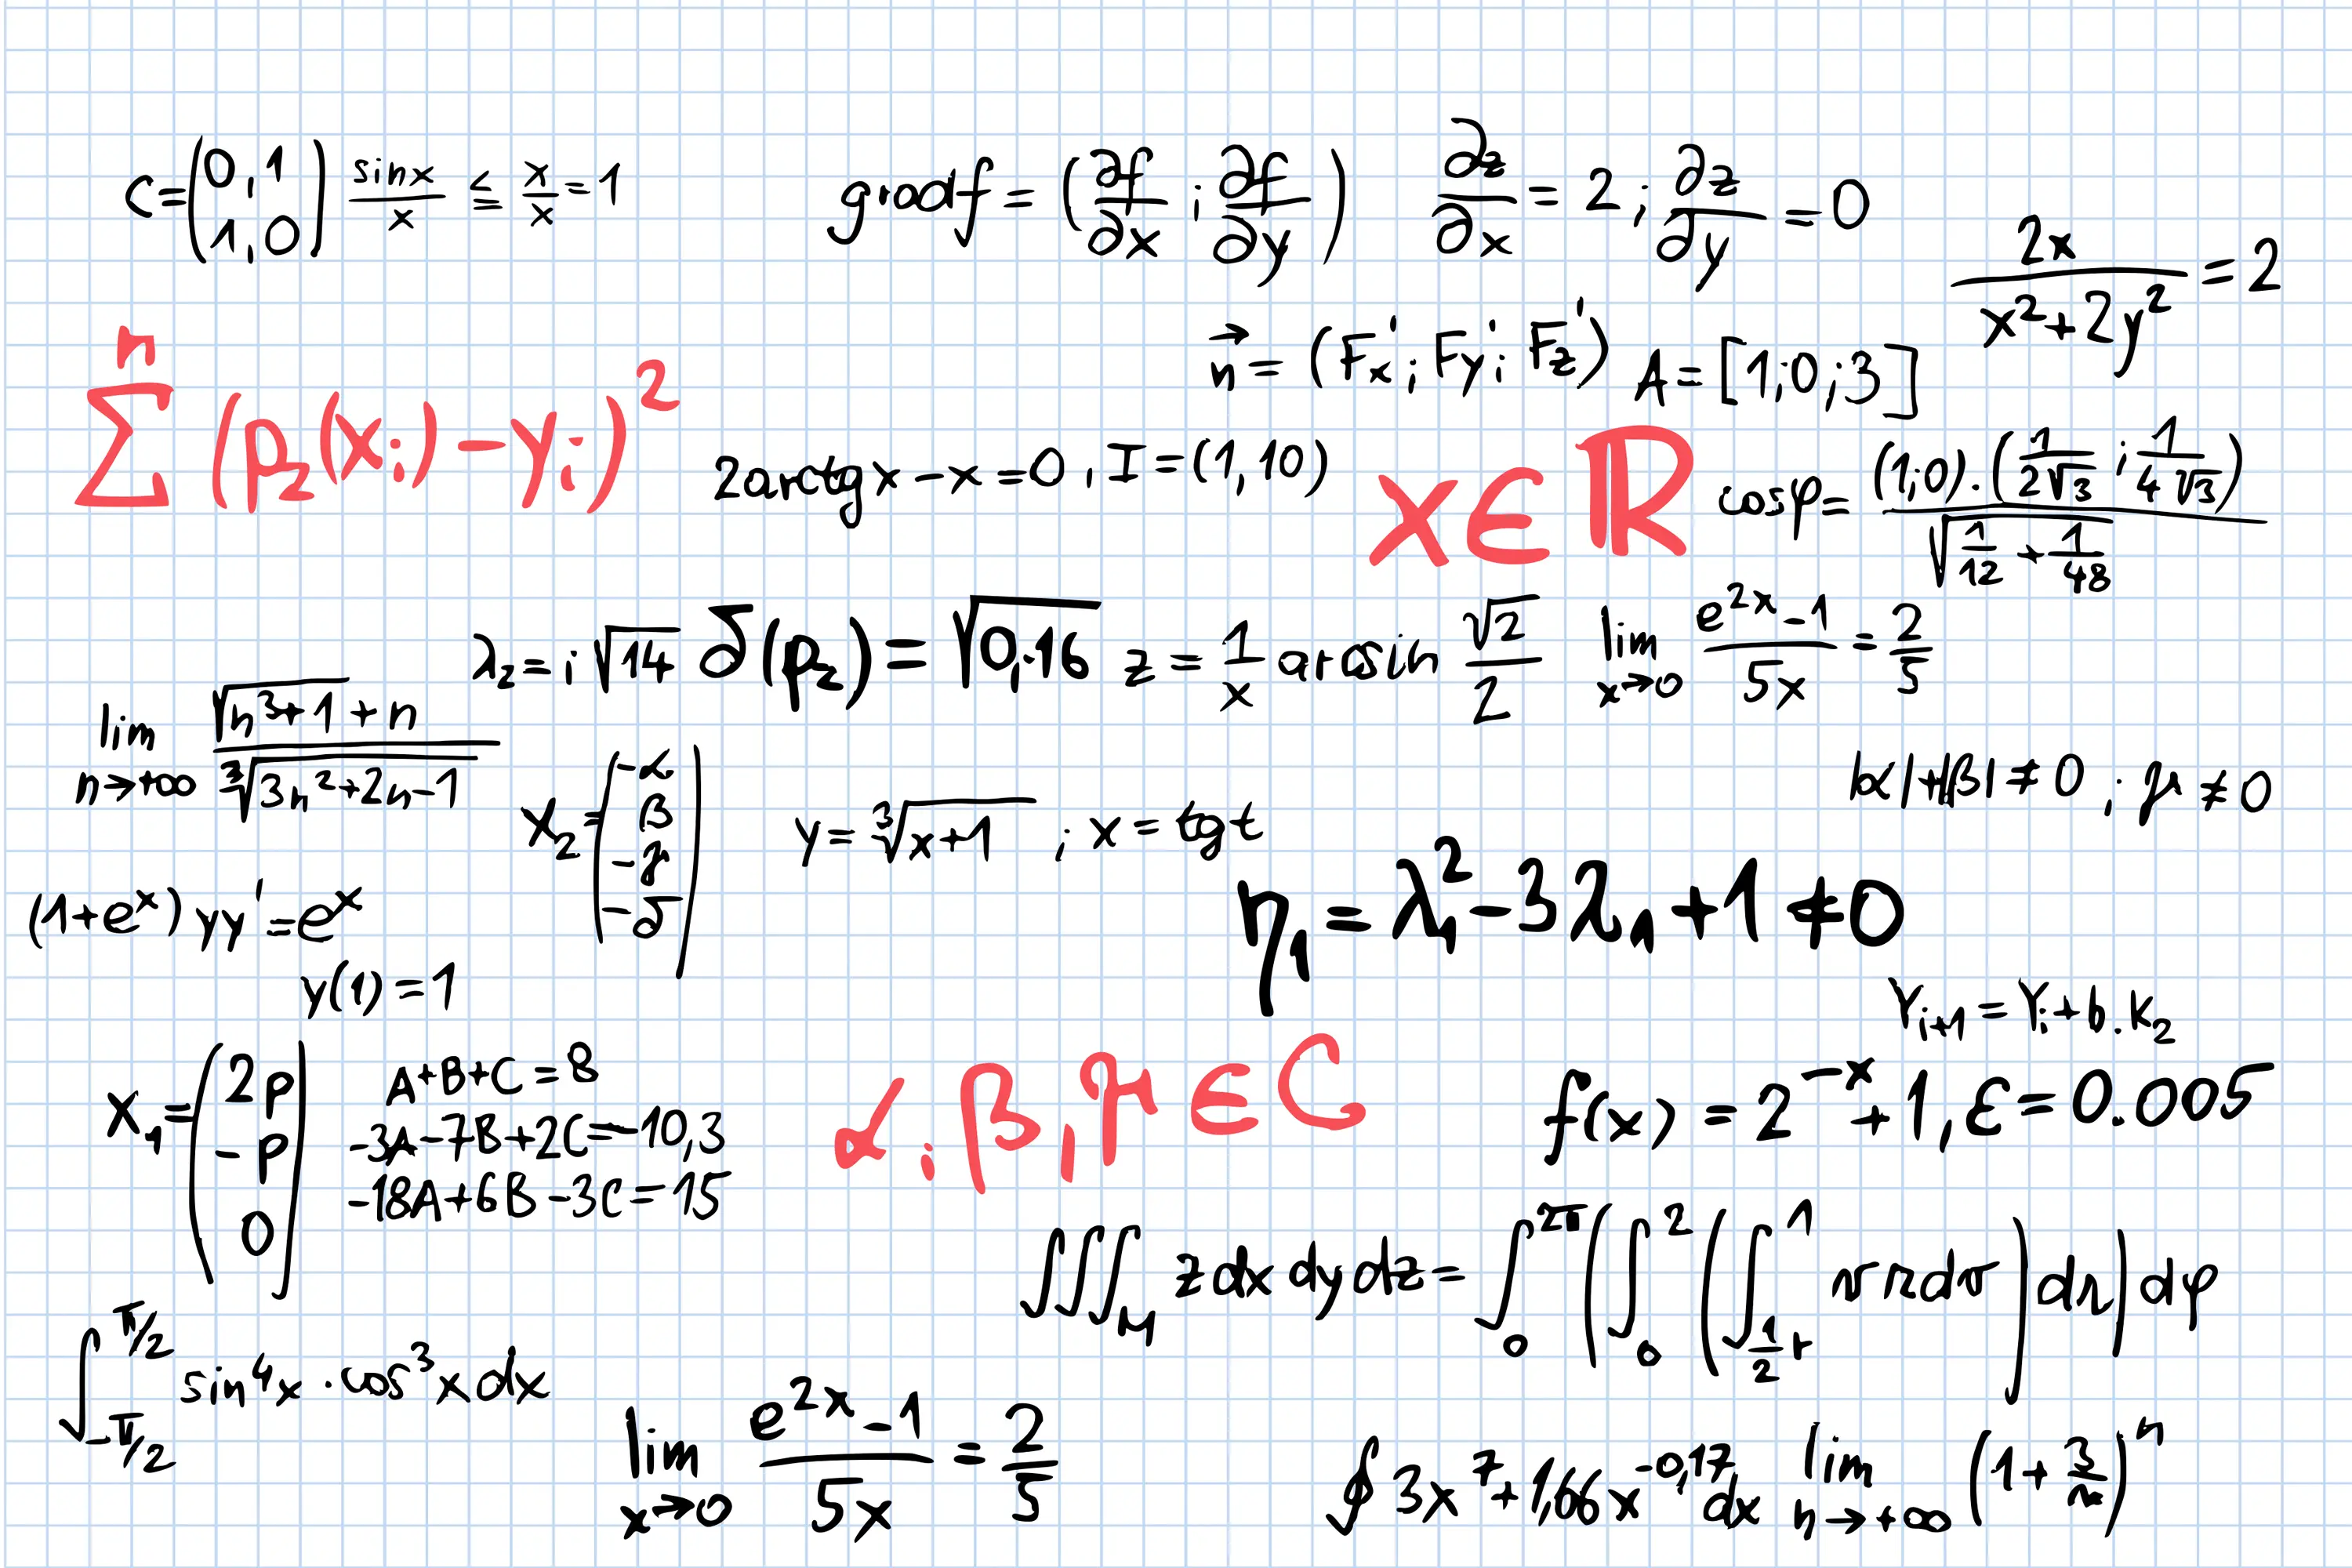 c=(0,1 1,0) sinx/x ≤ x/x = 1
gradf = (∂f/∂x ; ∂f/∂y)
∂z/∂x = 2 ; ∂z/∂y = 0
2x/(x²+2y²) = 2
n⃗ = (Fx' ; Fy' ; Fz')
A = [1;0;3]
n ∑ (p₂(xᵢ) − yᵢ)²
2arctgx − x = 0, I = (1,10)
x ∈ ℝ
cosφ = (1;0)·(1/(2√3) ; 1/(4√3)) / √(1/12 + 1/48)
λ₂ = i√14
δ(p₂) = √0,16
z = 1/x arcsin √2/2
lim x→0 (e^(2x) −1)/5x = 2/5
lim n→+∞ (√(n³+1) + n)/∛(3n²+2n−1)
x₂ = (−α β −γ −δ)
y = ∛(x+1) ; x = tgt
|α|+|β| ≠ 0 ; γ ≠ 0
(1+eˣ) yy' = eˣ
y(1) = 1
η₁ = λ₁² − 3λ₁ + 1 ≠ 0
Yᵢ₊₁ = Yᵢ + b.k₂
x₁ = (2p −p 0)
A+B+C = 8
−3A−7B+2C = −10,3
−18A+6B−3C = 15
α, β, γ ∈ C
f(x) = 2^(−x) + 1, ε = 0.005
∭_M z dx dy dz = ∫₀^2π (∫₀^2 (∫_(1/2 r)^1 r r dr) dr) dφ
∫_(−π/2)^(π/2) sin⁴x · cos³x dx
lim x→0 (e^(2x) −1)/5x = 2/5
∮ 3x⁷ + 1,66x^(−0,17) dx
lim n→+∞ (1 + 3/n)ⁿ